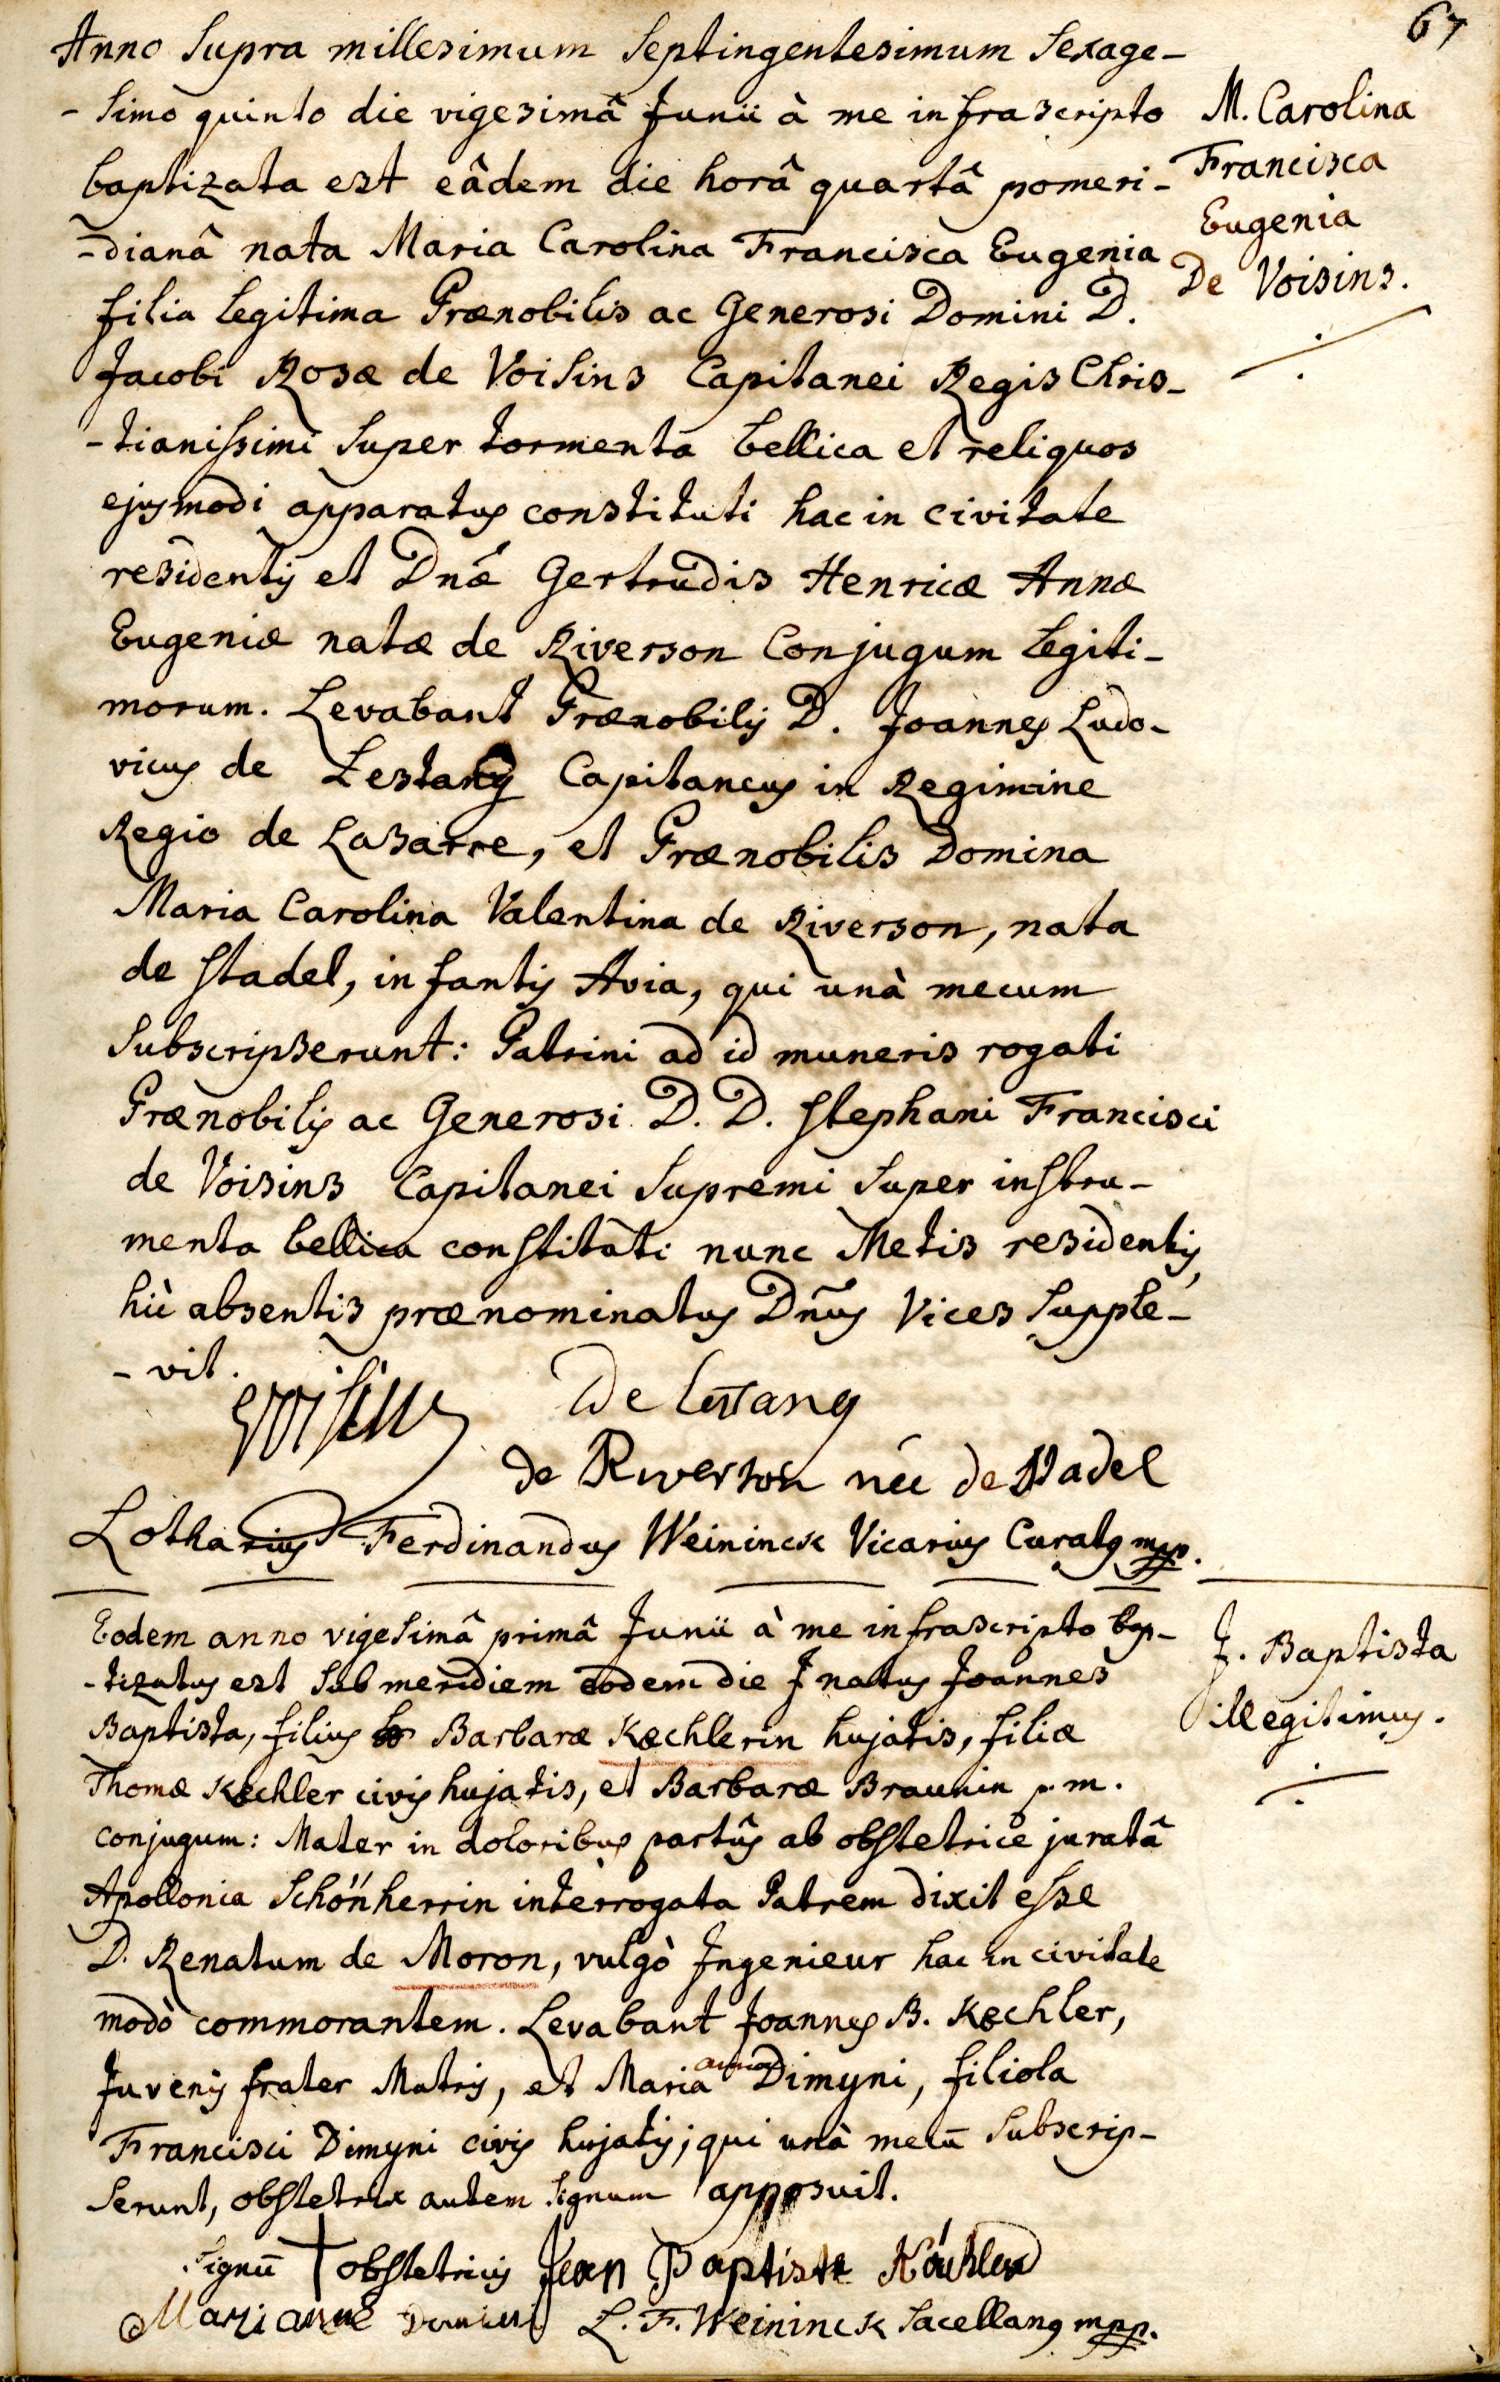 67
Anno Supra millesimum Septingentesimum Sexage-
-Simo quinto die vigesimâ Junii à me infrascripto
baptizata est eâdem die horâ quartâ pomeri-
-dianâ nata Maria Carolina Francisca Eugenia
filia legitima Prænobilis ac Generosi Domini D.
Jacobi Rosæ de Voisins Capitanei Regis Chris-
-tianissimi Super tormenta bellica et reliquos
ejusmodi apparatus constituti hac in civitate
residentis et Dnæ Gertrudis Henricæ Annæ
Eugeniæ natæ de Riverson Conjugum legiti-
morum. Levabant Prænobilis D. Joannes Ludo-
vicus de Lestang Capitaneus in Regimine
Regio de LaSarre, et Prænobilis Domina
Maria Carolina Valentina de Riverson, nata
de Stadel, infantis Avia, qui unà mecum
Subscripserunt: Patrini ad id muneris rogati
Prænobilis ac Generosi D. D. Stephani Francisci
de Voisins Capitanei Supremi Super instru-
menta bellica constituti nunc Metis residentis,
hìc absentis prænominatus Dnus Vices Supple-
-vit.
M. Carolina
Francisca
Eugenia
De Voisins.
Voisins
De lestang
de Riverson née de Stadel
Lotharius Ferdinandus Weininck Vicarius Curatus mpp.
Eodem anno vigesimâ primâ Junii à me infrascripto bap-
-tizatus est Sub meridiem eodem die natus Joannes
Baptista, filius Barbaræ Kæchlerin hujatis, filiæ
Thomæ Kæchler civis hujatis, et Barbaræ Braunin p.m.
conjugum: Mater in doloribus partûs ab obstetrice juratâ
Apollonia Schönherrin interrogata Patrem dixit esse
D. Renatum de Moron, vulgò Ingenieur hac in civitate
modò commorantem. Levabant Joannes B. Kæchler,
Juvenis frater Matris, et Maria anna Dimyni, filiola
Francisci Dimyni civis hujatis; qui unà mecū Subscrip-
Serunt, obstetrix autem Signum apposuit.
J. Baptista
illegitimus.
Signū † obstetricis Jean Baptiste Käuhler
Marianne L. F. Weininck Sacellanus mpp.